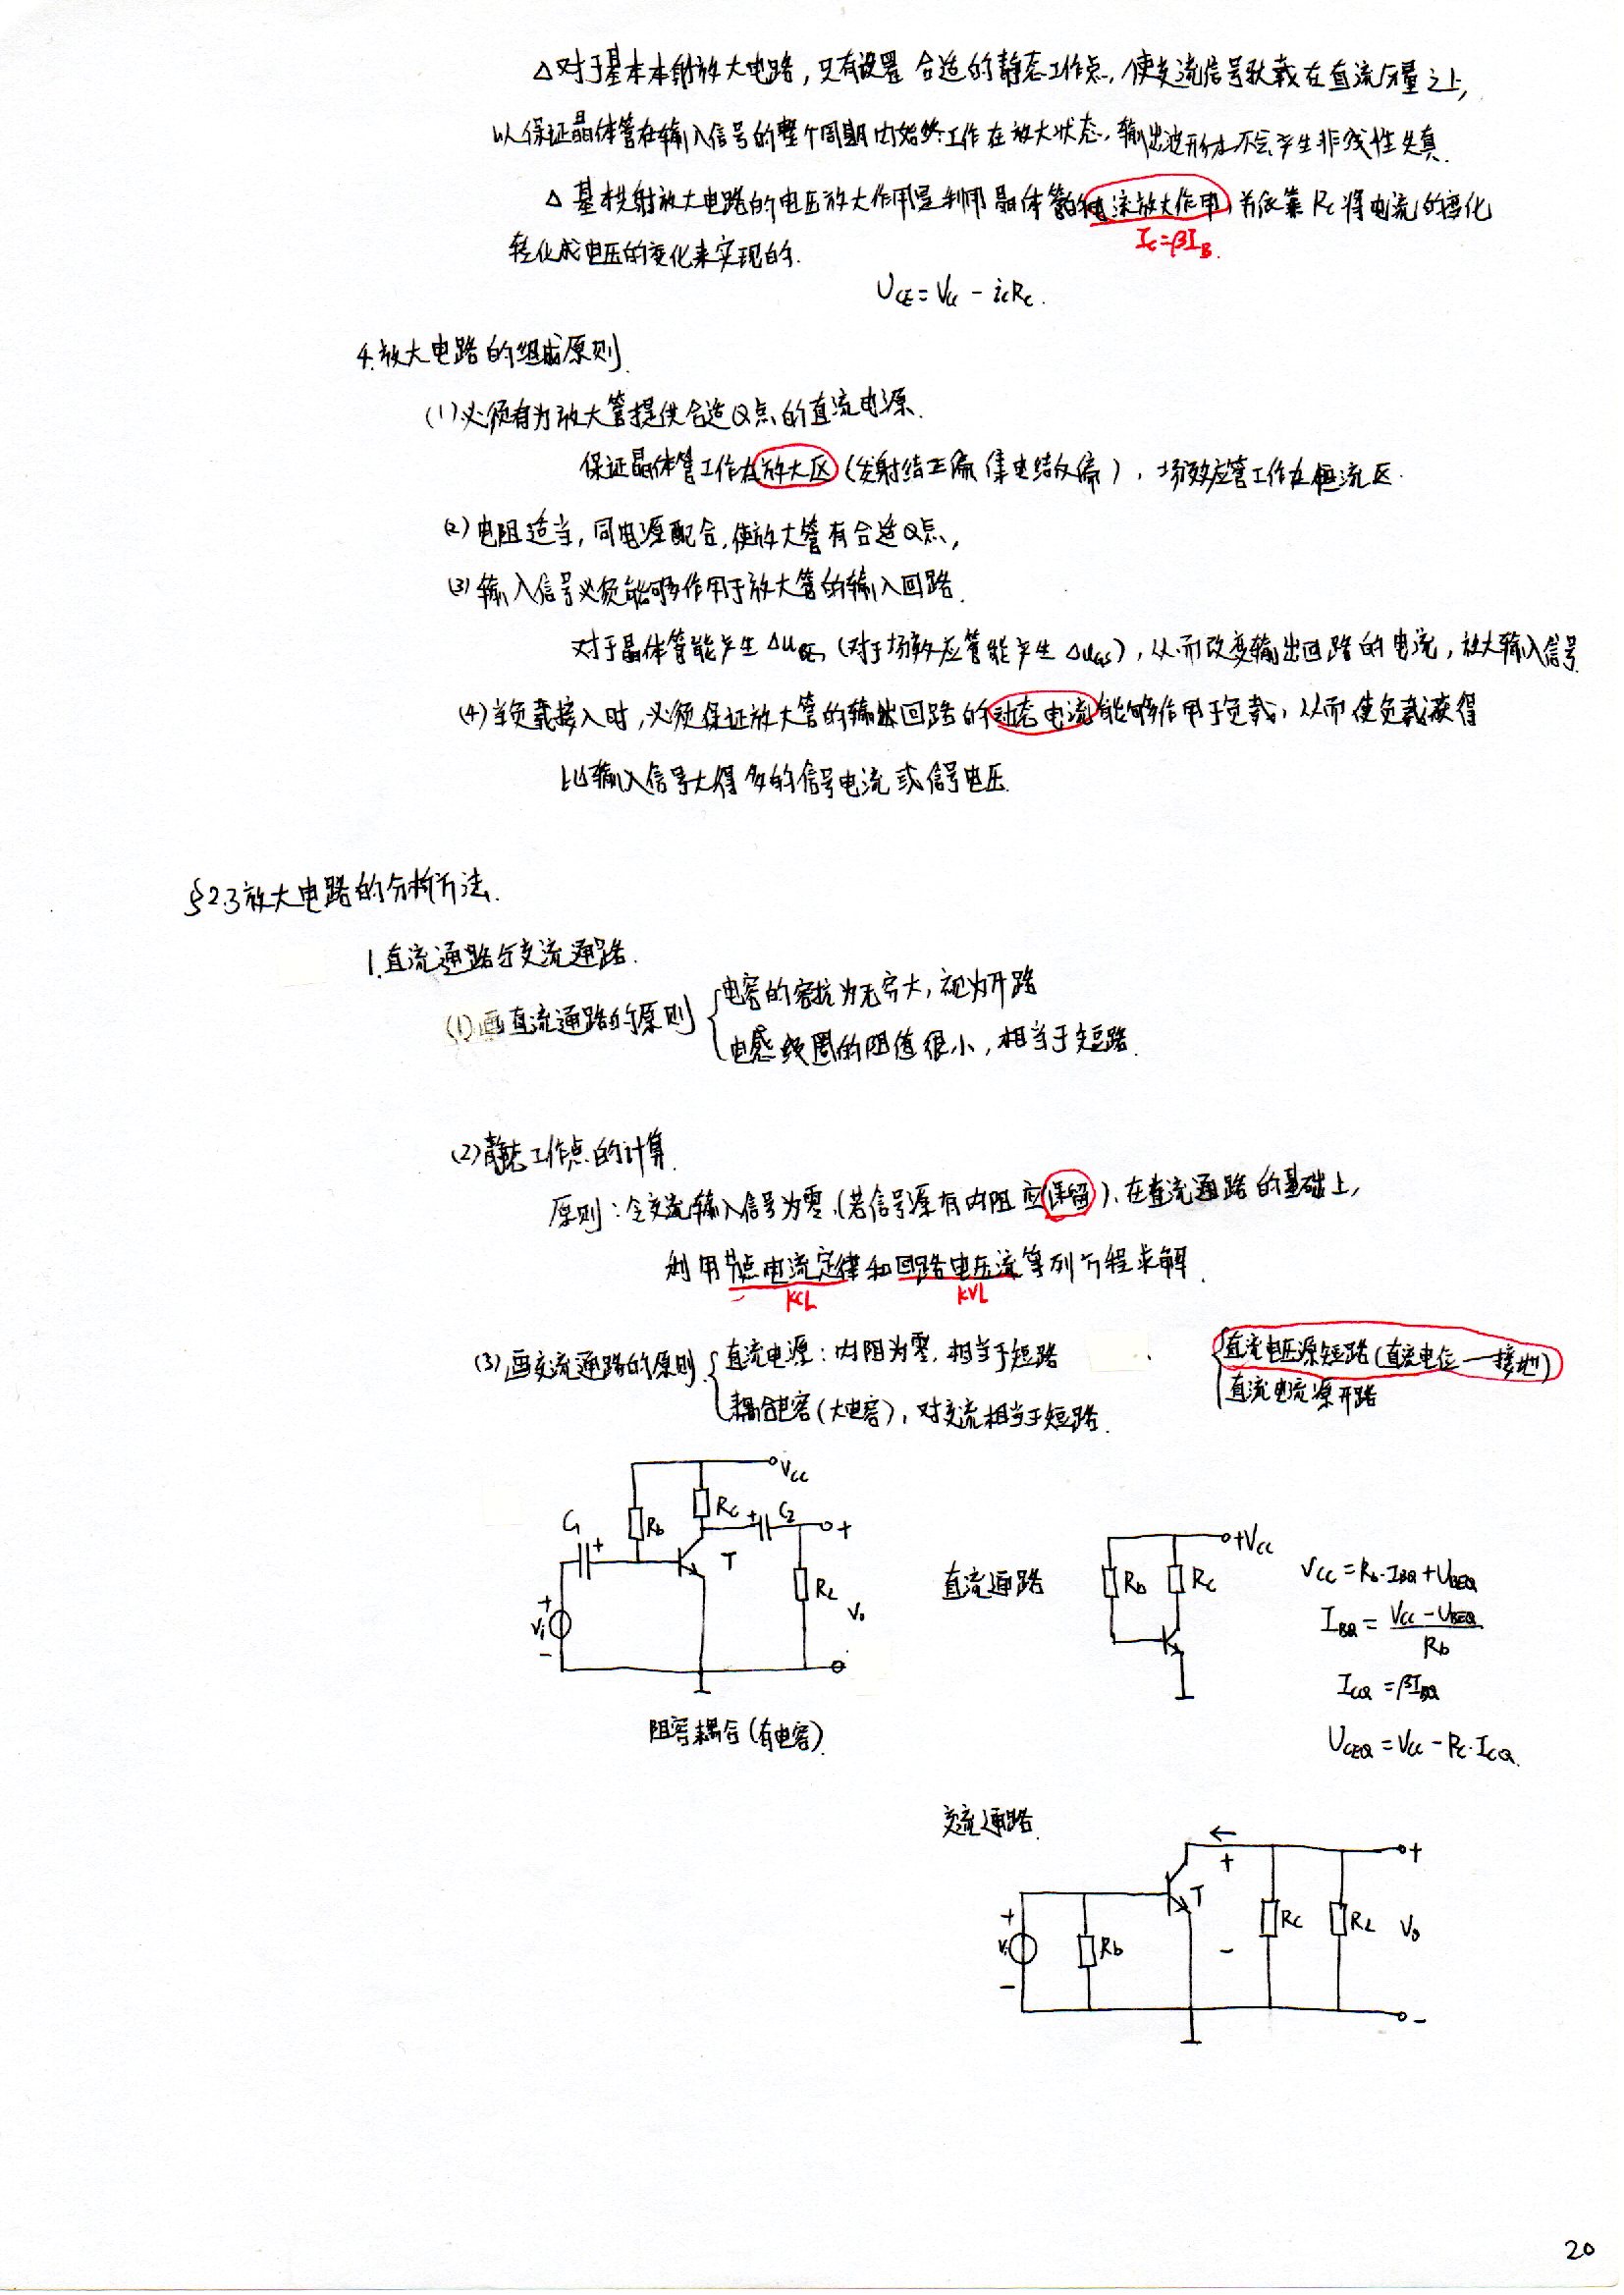 △对于基本共射放大电路，只有设置 合适的静态工作点，使交流信号驮载在直流分量之上，
以保证晶体管在输入信号的整个周期内始终工作在放大状态，输出波形才不会产生非线性失真.
△ 基本共射放大电路的电压放大作用是利用晶体管的电流放大作用，并依靠Rc将电流的变化
Ic=βIB.
转化成电压的变化来实现的.
UCE=Vcc-icRc.
4.放大电路的组成原则.
(1)必须有为放大管提供合适Q点的直流电源.
保证晶体管工作在放大区(发射结正偏 集电结反偏)，场效应管工作在恒流区.
(2)电阻适当，同电源配合，使放大管有合适Q点，
(3)输入信号必须能够作用于放大管的输入回路.
对于晶体管能产生ΔuBE，(对于场效应管能产生ΔuGS)，从而改变输出回路的电流，放大输入信号.
(4)当负载接入时，必须保证放大管的输出回路的动态电流能够作用于负载，从而使负载获得
比输入信号大得多的信号电流或信号电压.
§2.3放大电路的分析方法.
1.直流通路与交流通路.
(1)画直流通路的原则
电容的容抗为无穷大，视为开路
电感线圈的阻值很小，相当于短路.
(2)静态工作点的计算.
原则：令交流输入信号为零，(若信号源有内阻应保留)，在直流通路的基础上，
利用节点电流定律和回路电压流等列方程求解.
KCL KVL
(3)画交流通路的原则
直流电源：内阻为零，相当于短路
耦合电容(大电容)，对交流相当于短路.
直流电压源短路(直流电位—接地)
直流电流源开路
Vcc
C1 + Rb Rc + C2 +
T
RL
+ Vi -
Vo
阻容耦合(有电容).
直流通路
+Vcc
Rb Rc
Vcc=Rb·IBQ+UBEQ
IBQ=(Vcc-UBEQ)/Rb
ICQ=βIBQ
UCEQ=Vcc-Rc·ICQ.
交流通路.
← +
+
T
+ Vi -
Rb
-
Rc RL Vo
-
20